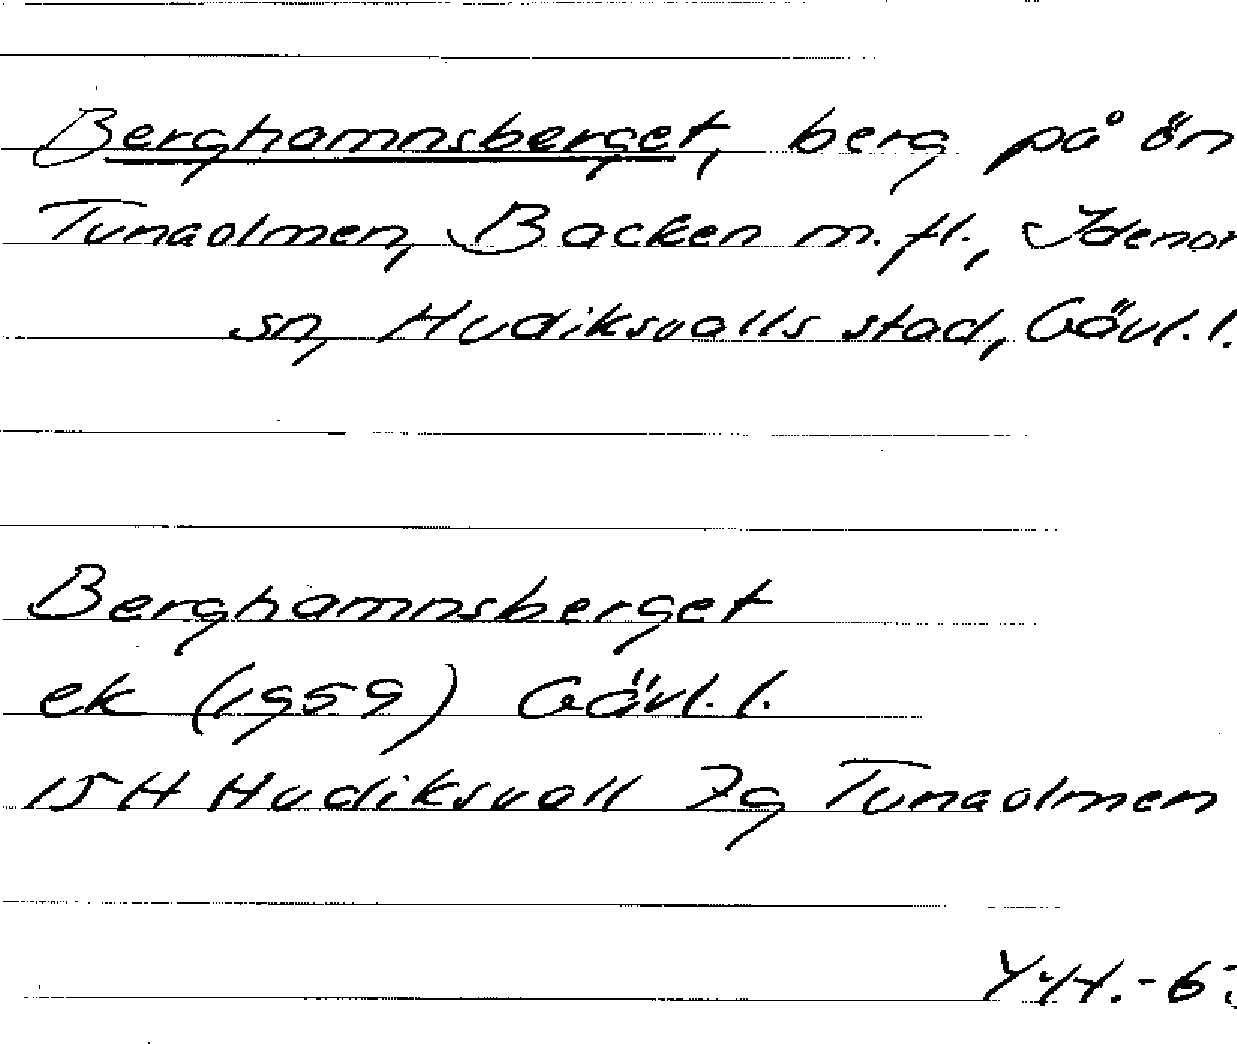 Berghamnsberget, berg på ön
Tunaolmen, Backen m.fl., Idenor
sn, Hudiksvalls stad, Gävl.l.
Berghamnsberget
ek (1959) Gävl.l.
15H Hudiksvall 7g Tunaolmen